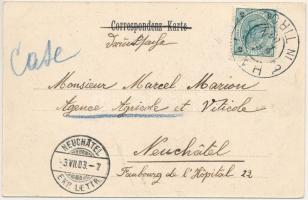 Correspondenz-Karte
Drucksache
Case
Monsieur Marcel Marion
Agence Agricole et Viticole
Neuchâtel
Faubourg de l'Hôpital 22
NEUCHÂTEL
-3.VII.03.-7
EXP. LETTR.